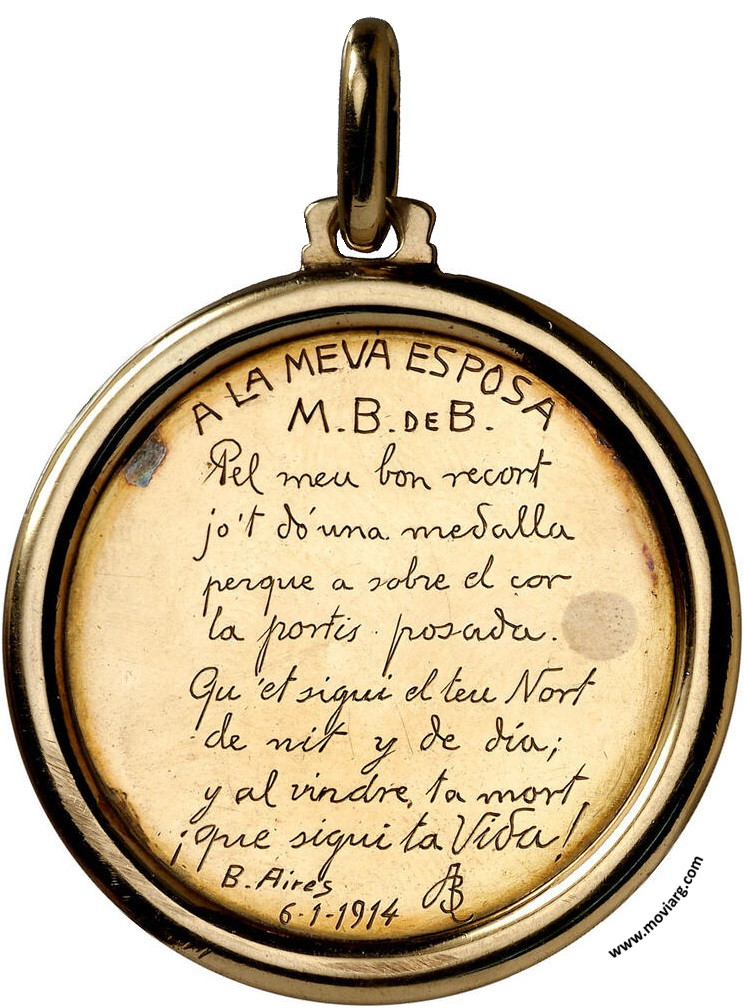 A LA MEVA ESPOSA
M. B. DE B.
Pel meu bon recort
jo't dó una medalla
perque a sobre el cor
la portis posada.
Qu'et sigui el teu Nort
de nit y de día;
y al vindre, ta mort
¡que sigui ta Vida!
B. Aires
6-1-1914
www.moviarg.com